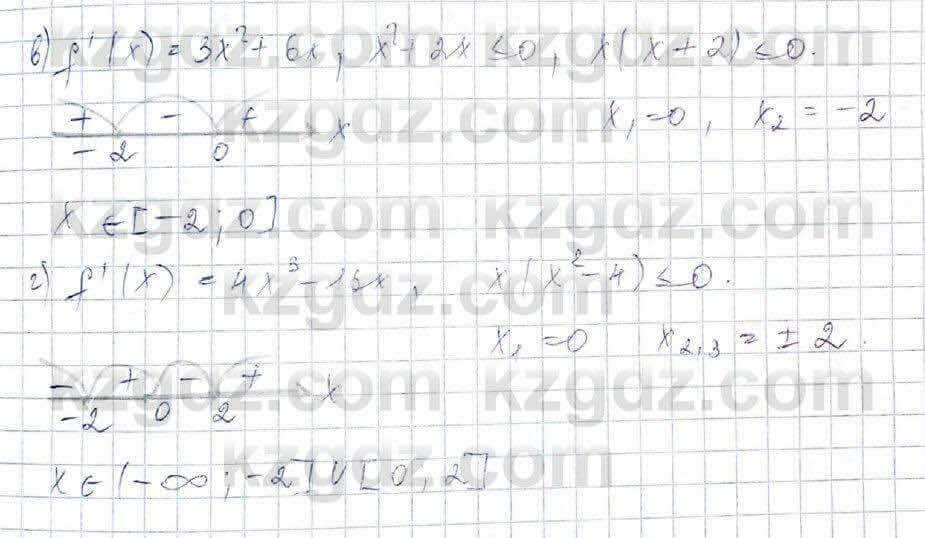 в) f'(x) = 3x² + 6x, x² + 2x ≤ 0, x(x + 2) ≤ 0.
+ - + x x₁ = 0, x₂ = -2
-2 0
x ∈ [-2; 0]
г) f'(x) = 4x³ - 16x, x(x² - 4) ≤ 0.
x₁ = 0 x₂,₃ = ± 2.
- + - + x
-2 0 2
x ∈ (-∞; -2] ∪ [0; 2]
kzgdz.com kzgdz.com
kzgdz.com
kzgdz.com kzgdz.com
kzgdz.com
kzgdz.com kzgdz.com
kzgdz.com